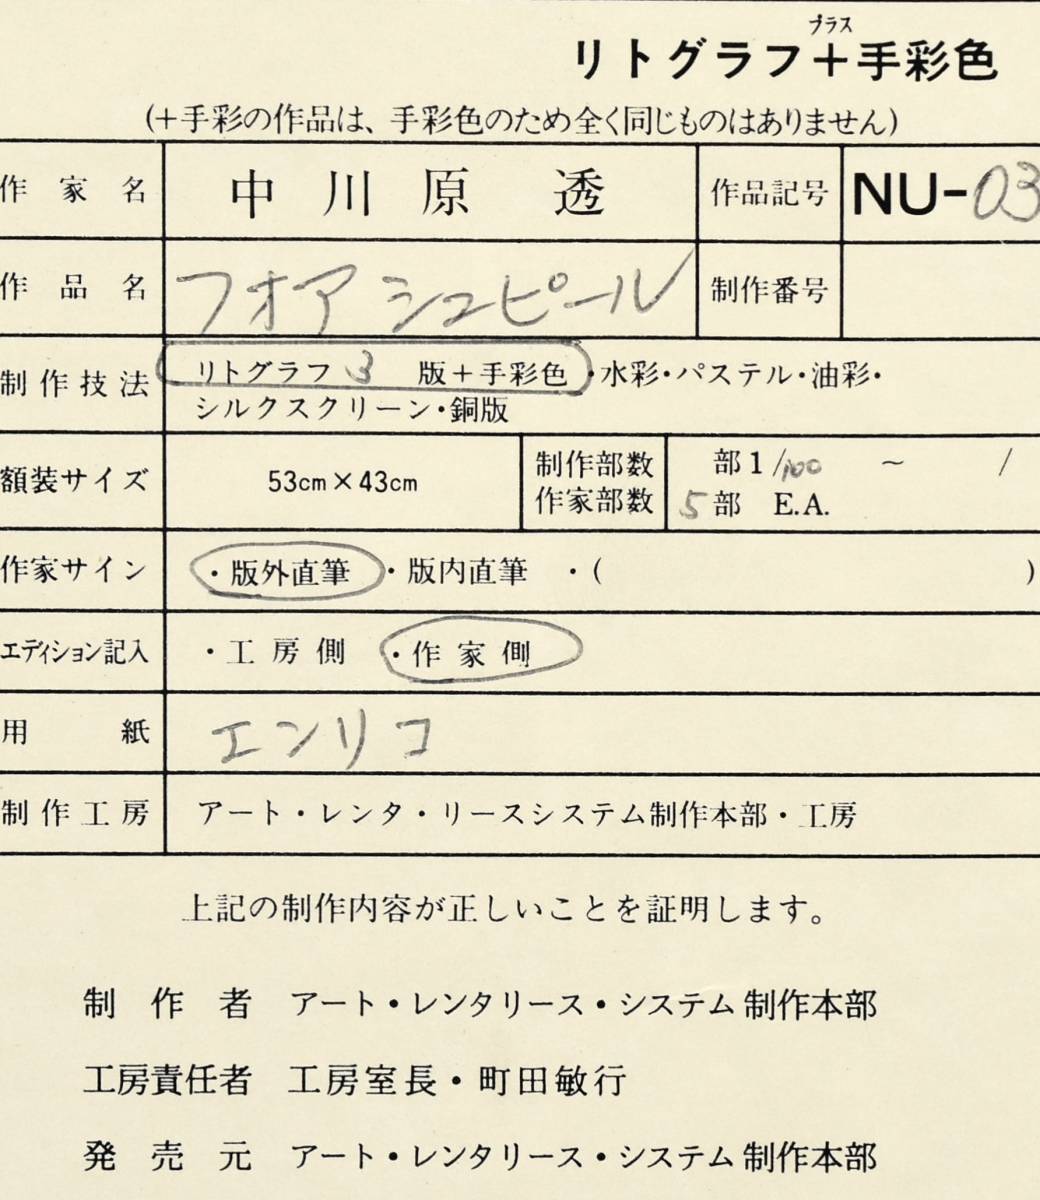 プラス
リトグラフ+手彩色
(+手彩の作品は、手彩色のため全く同じものはありません)
作家名 中川原 透 作品記号 NU-03
作品名 フォアシュピール 制作番号
制作技法 リトグラフ 3 版+手彩色・水彩・パステル・油彩・
シルクスクリーン・銅版
額装サイズ 53cm×43cm 制作部数 部1/100 ~ /
作家部数 5部 E.A.
作家サイン ・版外直筆 ・版内直筆 ・( )
エディション記入 ・工房側 ・作家側
用紙 エンリコ
制作工房 アート・レンタ・リースシステム制作本部・工房
上記の制作内容が正しいことを証明します。
制作者 アート・レンタリース・システム制作本部
工房責任者 工房室長・町田敏行
発売元 アート・レンタリース・システム制作本部